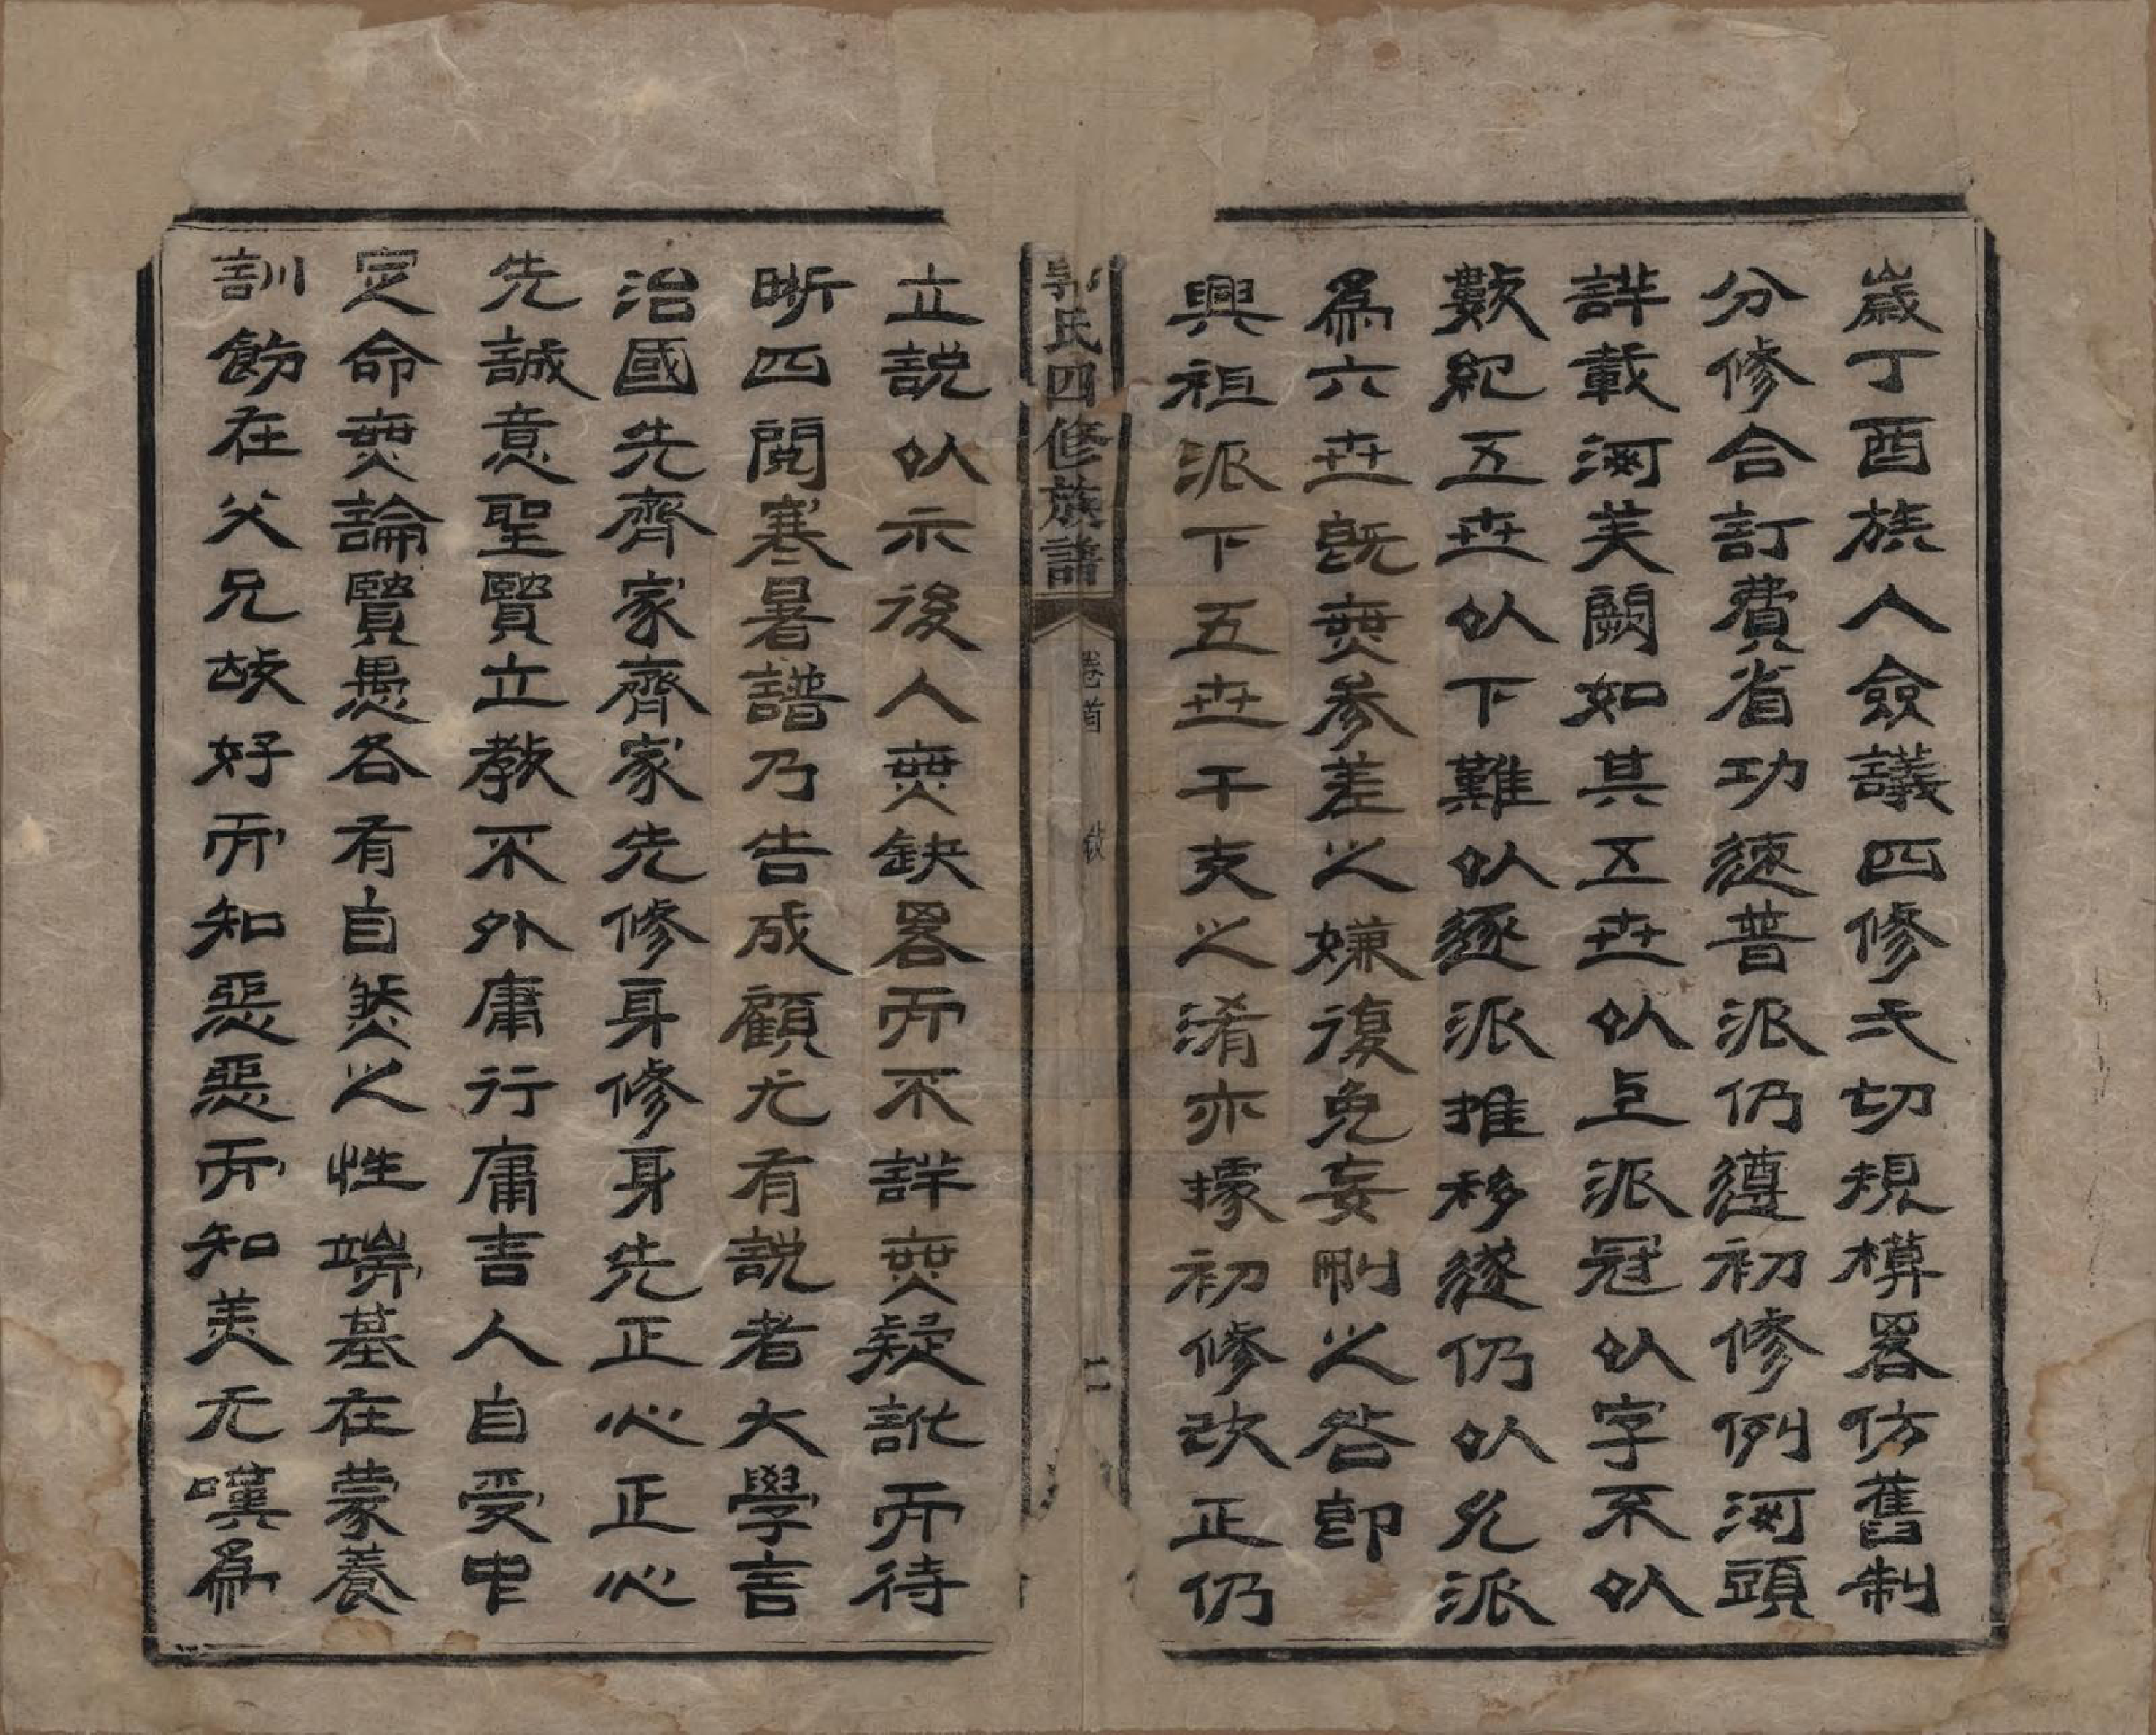 歲丁酉族人僉議四修弌切規模畧仿舊制
分修合訂費省功速普派仍遵初修例河頭
詳載河芙闕如其五世以上派冠以字不以
數紀五世以下難以逐派推移遂仍以允派
爲六世既無參差之嫌復免妄刪之咎卽
興祖派下五世干支之淆亦據初修改正仍
郭氏四修族譜
卷首
二
立説以示後人無缺畧而不詳無疑訛而待
晰四閱寒暑譜乃告成顧尤有説者大學言
治國先齊家齊家先修身修身先正心正心
先誠意聖賢立教不外庸行庸言人自受中
定命無論賢愚各有自然之性端基在蒙養
訓飭在父兄故好而知惡惡而知美无嘆爲